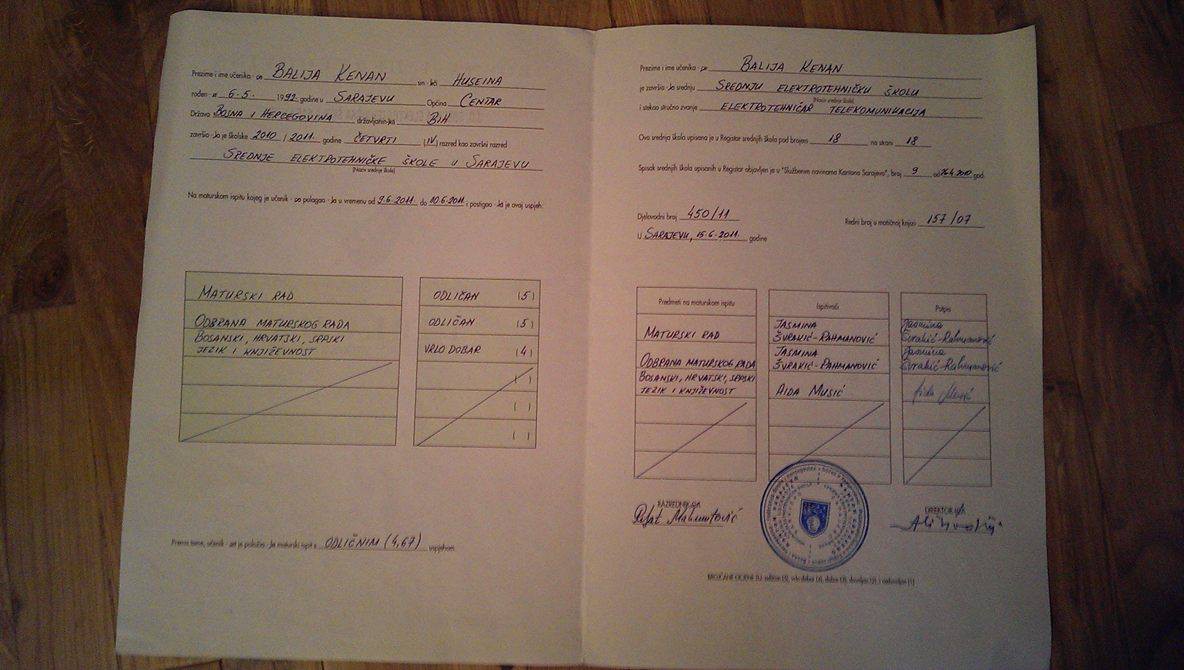 Prezime i ime učenika - ce BALIJA KENAN sin - kći HUSEINA
rođen - a 6-5. 1992. godine u SARAJEVU Općina CENTAR
Država BOSNA I HERCEGOVINA državljanin-ka BIH
završio - la je školske 2010 / 2011. godine ČETVRTI (IV) razred kao završni razred
SREDNJE ELEKTROTEHNIČKE ŠKOLE U SARAJEVU
(Naziv srednje škole)
Na maturskom ispitu kojeg je učenik - ca polagao - la u vremenu od 9.6.2011. do 10.6.2011. i postigao - la je ovaj uspjeh:
MATURSKI RAD ODLIČAN (5)
ODBRANA MATURSKOG RADA ODLIČAN (5)
BOSANSKI, HRVATSKI, SRPSKI
JEZIK I KNJIŽEVNOST VRLO DOBAR (4)
( )
( )
( )
Prema tome, učenik - ca je položio - la maturski ispit s ODLIČNIM (4,67) uspjehom.
Prezime i ime učenika - ce BALIJA KENAN
je završio - la srednju SREDNJU ELEKTROTEHNIČKU ŠKOLU
(Naziv srednje škole)
i stekao stručno zvanje ELEKTROTEHNIČAR TELEKOMUNIKACIJA
Ova srednja škola upisana je u Registar srednjih škola pod brojem 18 na strani 18
Spisak srednjih škola upisanih u Registar objavljen je u "Službenim novinama Kantona Sarajevo", broj 9 od god.
Djelovodni broj 450/11 Redni broj u matičnoj knjizi 157/07
U SARAJEVU, 15.6.2011. godine
Predmeti na maturskom ispitu Ispitivači Potpis
MATURSKI RAD JASMINA ŠVRAKIĆ-RAHMANOVIĆ Jasmina Švrakić-Rahmanović
ODBRANA MATURSKOG RADA JASMINA ŠVRAKIĆ-RAHMANOVIĆ Jasmina Švrakić-Rahmanović
BOSANSKI, HRVATSKI, SRPSKI
JEZIK I KNJIŽEVNOST AIDA MUSIĆ Aida Musić
RAZREDNIK-CA DIREKTOR-ICA
Mahmutović
BROJČANE OCJENE SU: odličan (5), vrlo dobar (4), dobar (3), dovoljan (2), i nedovoljan (1)